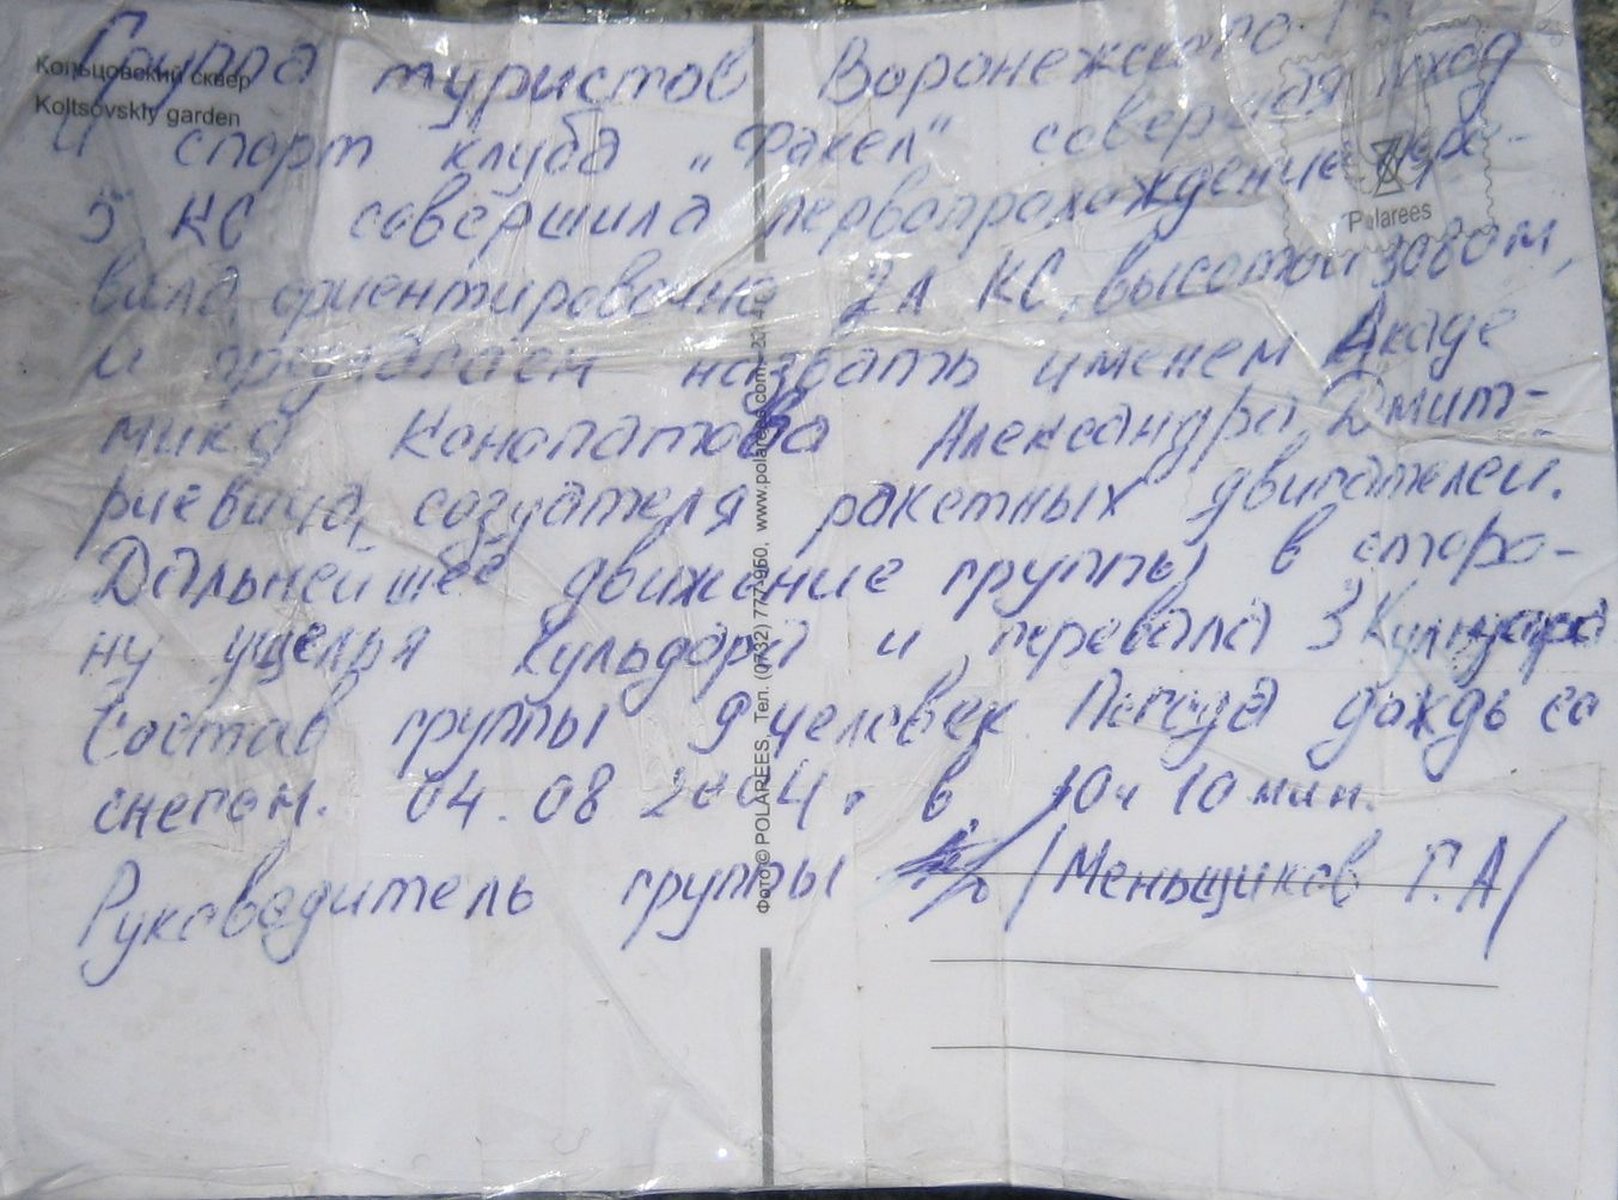 Кольцовский сквер
Koltsovskiy garden
Группа туристов Воронежского
и спорт клуба „Факел“ совершая поход
5 КС совершила первопрохождение пере-
вала, ориентировочно 2А КС, высотой 3080 м,
и предлагаем назвать именем Акаде
мика Конопатова Александра Дмит-
риевича, создателя ракетных двигателей.
Дальнейшее движение группы в сторо-
ну ущелья Кульдора и перевала 3
Состав группы 9 человек. Погода дождь со
снегом. 04.08 2004 г в 10ч 10 мин.
Руководитель группы /Меньщиков Г.А/
Polarees
Фото © POLAREES, Тел. (0732) 777-960, www.polarees.com